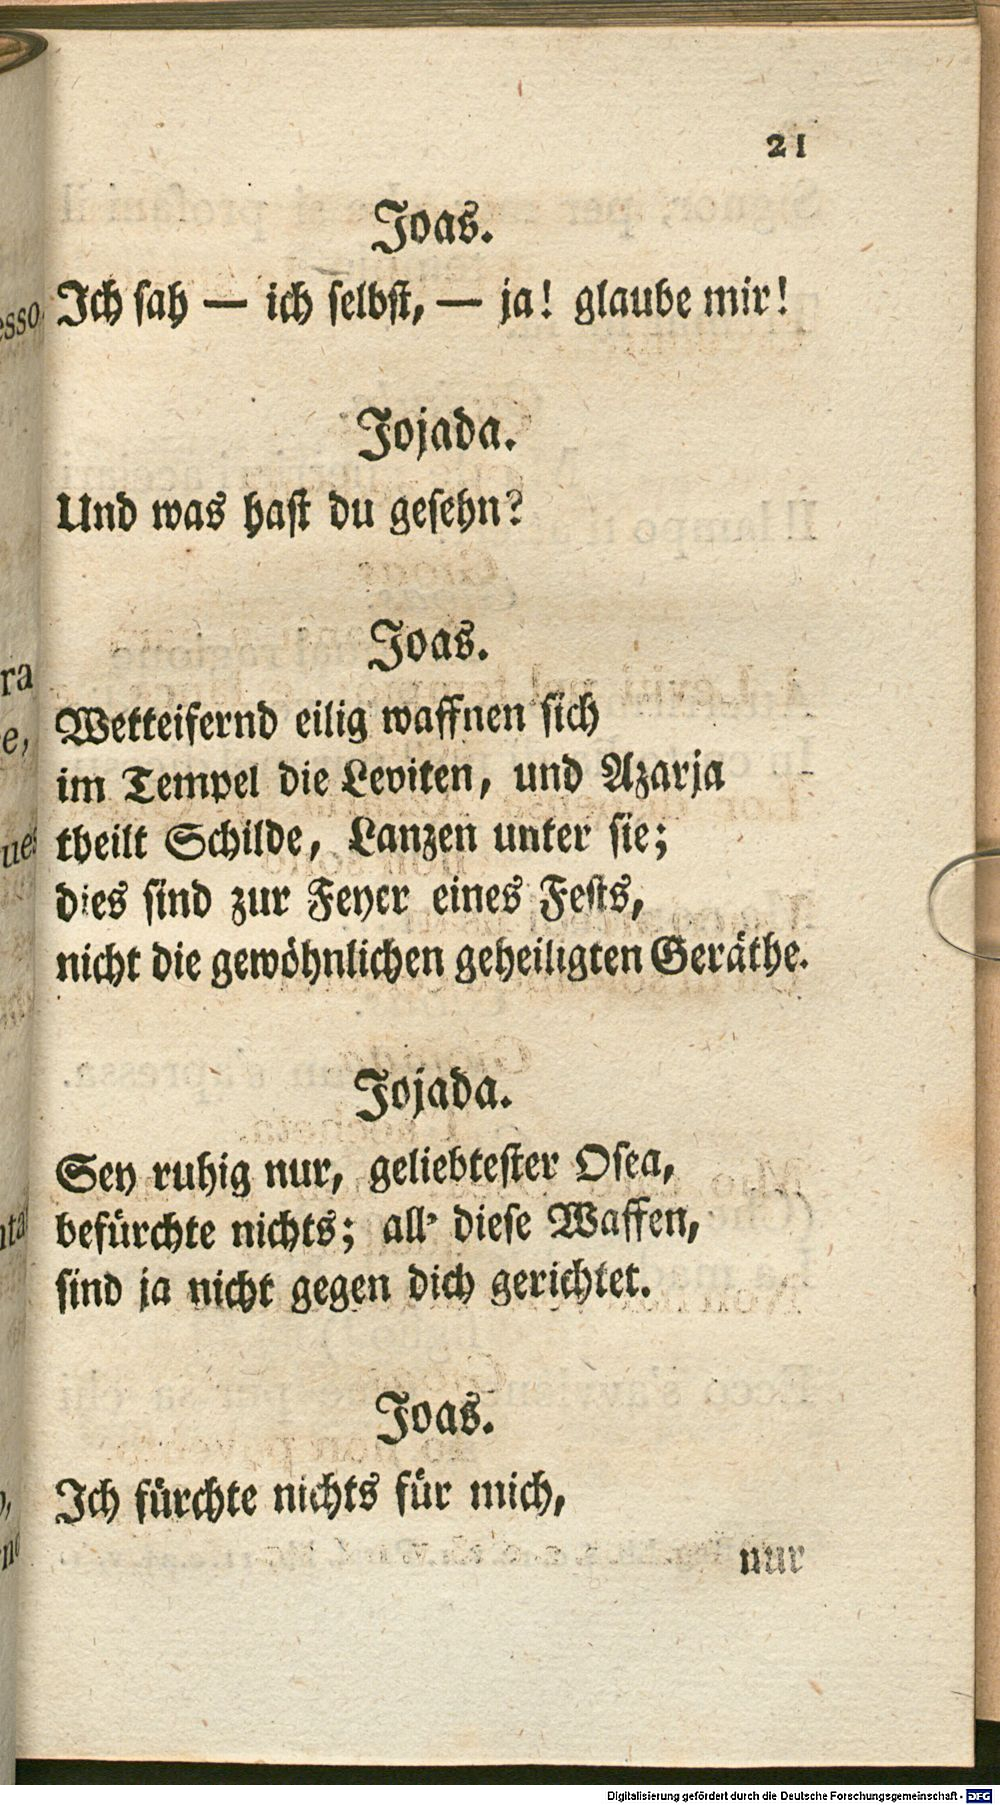 21
Joas.
Ich sah — ich selbst, — ja! glaube mir!
Jojada.
Und was hast du gesehn?
Joas.
Wetteifernd eilig waffnen sich
im Tempel die Leviten, und Azarja
theilt Schilde, Lanzen unter sie;
dies sind zur Feyer eines Fests,
nicht die gewöhnlichen geheiligten Geräthe.
Jojada.
Sey ruhig nur, geliebtester Osea,
befürchte nichts; all' diese Waffen,
sind ja nicht gegen dich gerichtet.
Joas.
Ich fürchte nichts für mich,
nur
Digitalisierung gefördert durch die Deutsche Forschungsgemeinschaft - DFG